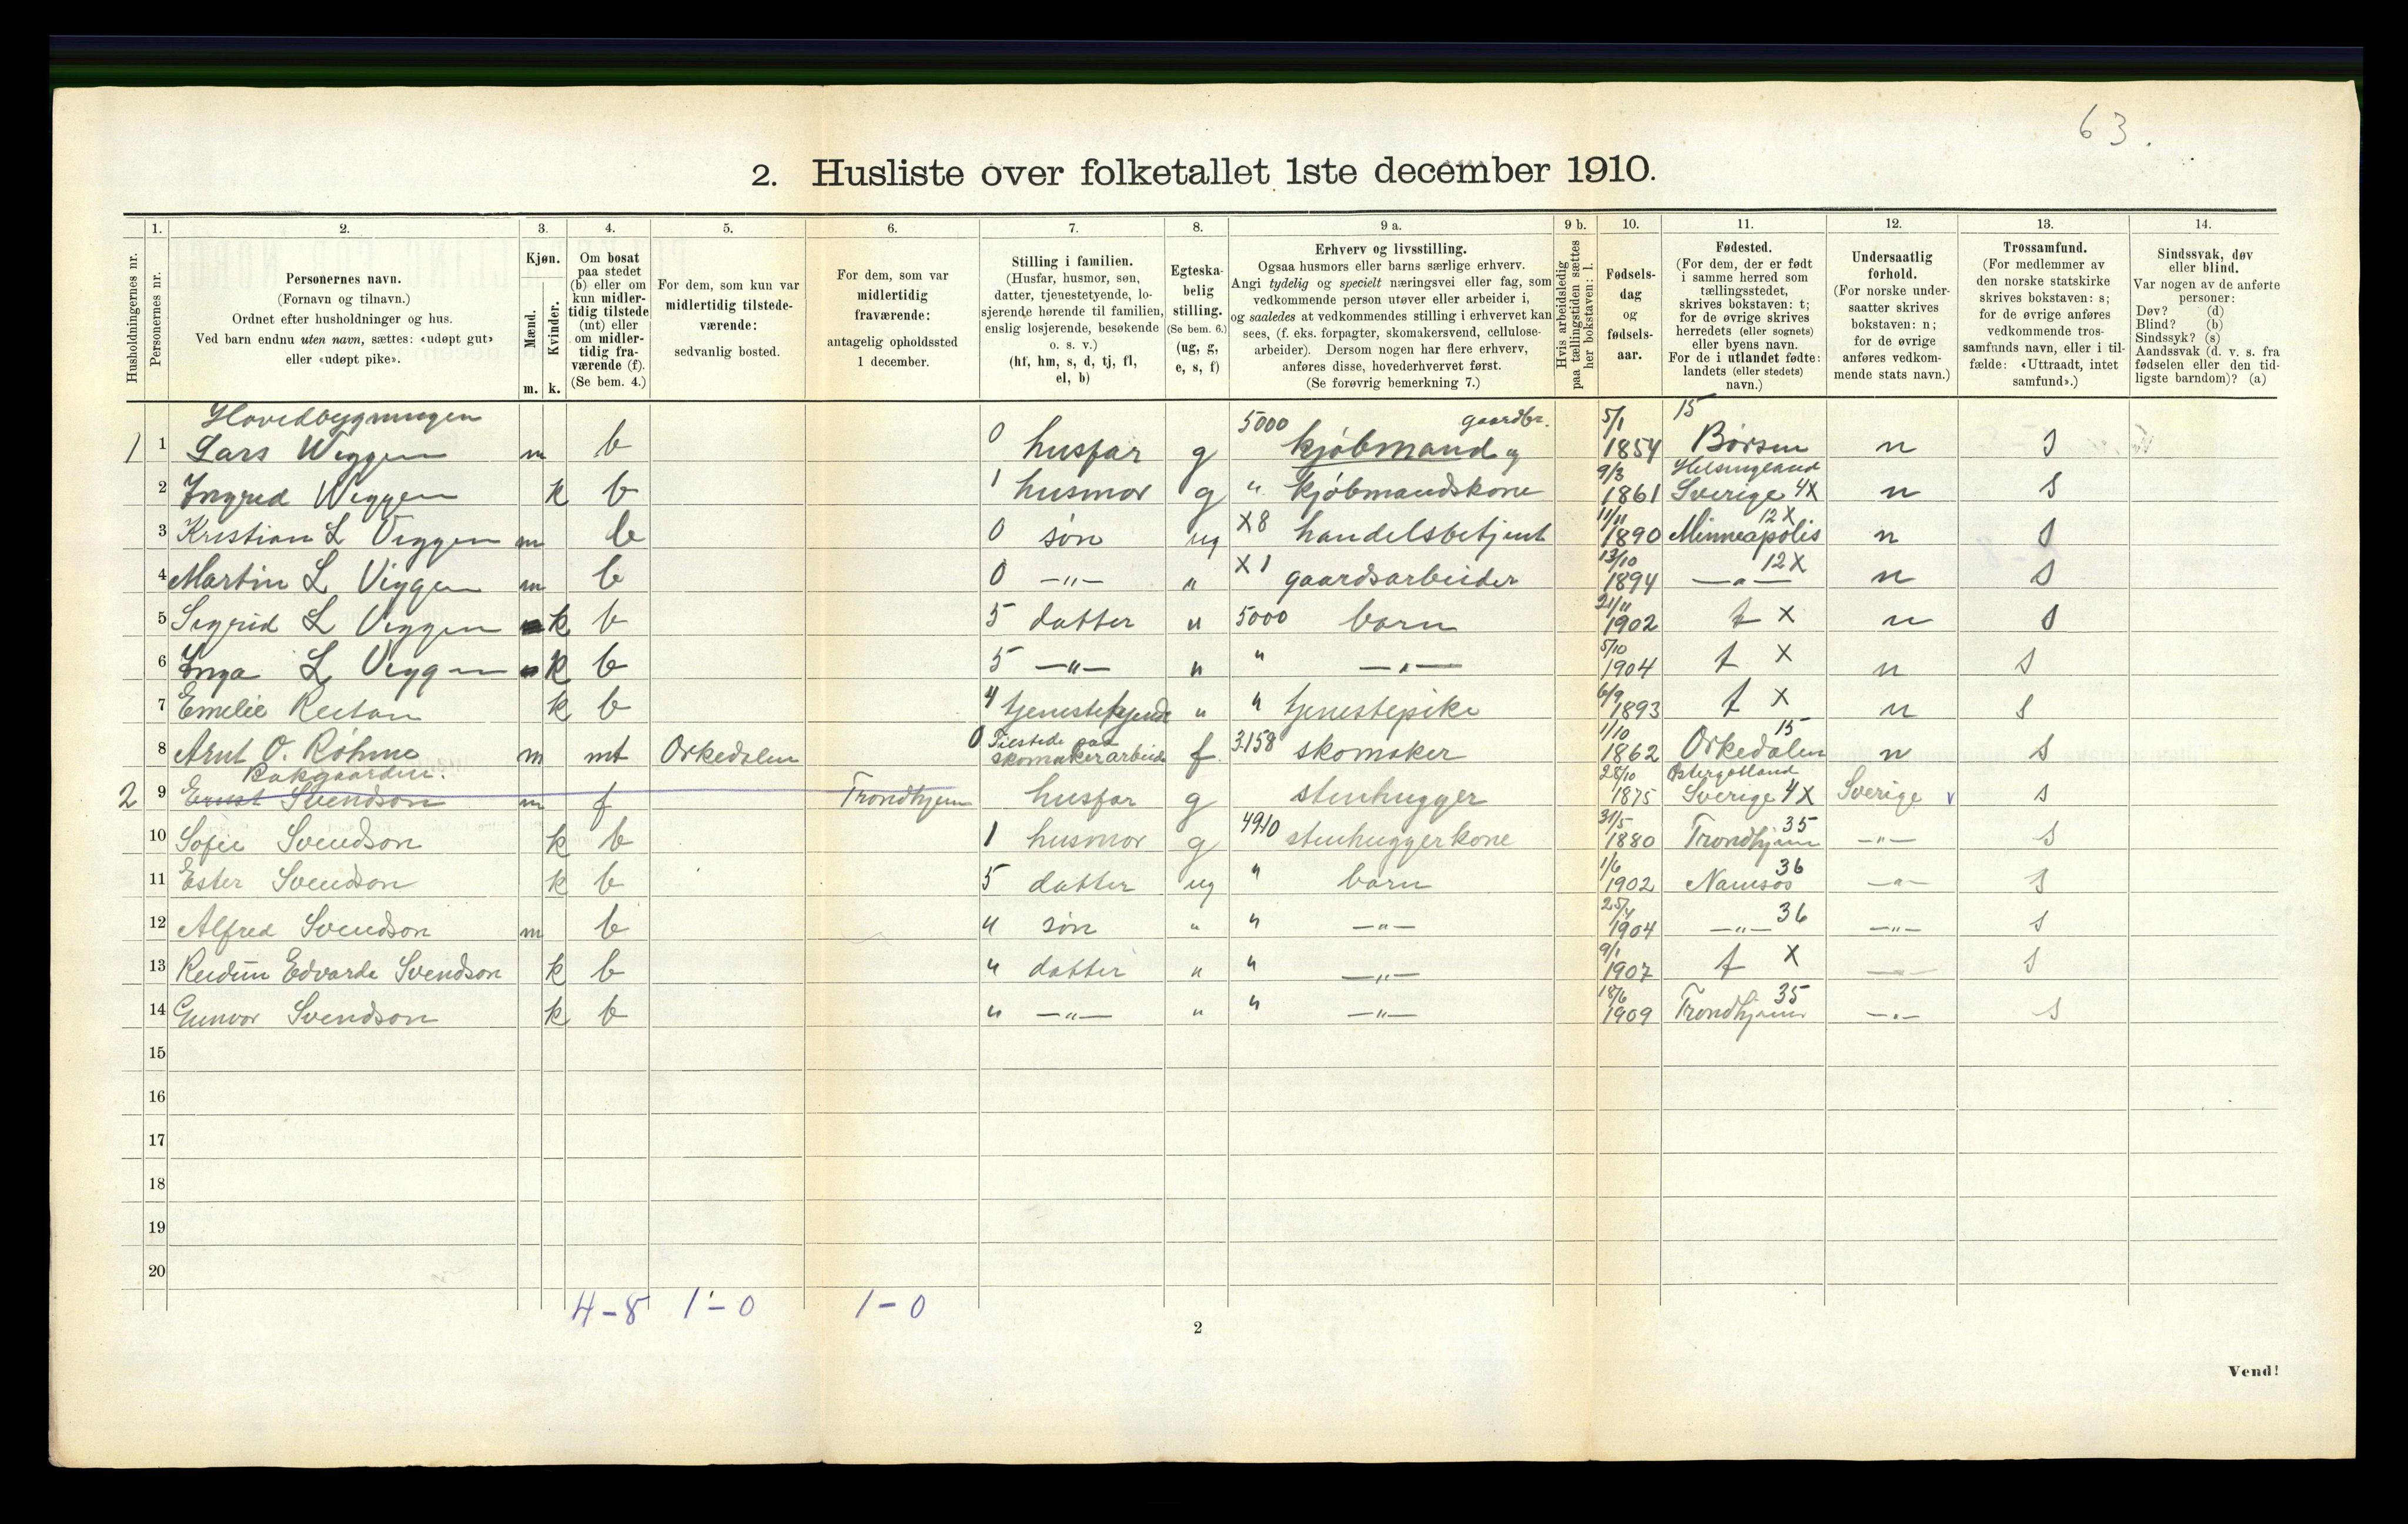 63.
2. Husliste over folketallet 1ste december 1910.
1. 2. 3. 4. 5. 6. 7. 8. 9 a. 9 b. 10. 11. 12. 13. 14.
Husholdningernes nr.
Personernes nr.
Personernes navn.
(Fornavn og tilnavn.)
Ordnet efter husholdninger og hus.
Ved barn endnu uten navn, sættes: «udøpt gut»
eller «udøpt pike».
Kjøn.
Mænd.
Kvinder.
m. k.
Om bosat
paa stedet
(b) eller om
kun midler-
tidig tilstede
(mt) eller
om midler-
tidig fra-
værende (f).
(Se bem. 4.)
For dem, som kun var
midlertidig tilstede-
værende:
sedvanlig bosted.
For dem, som var
midlertidig
fraværende:
antagelig opholdssted
1 december.
Stilling i familien.
(Husfar, husmor, søn,
datter, tjenestetyende, lo-
sjerende hørende til familien,
enslig losjerende, besøkende
o. s. v.)
(hf, hm, s, d, tj, fl,
el, b)
Egteska-
belig
stilling.
(Se bem. 6.)
(ug, g,
e, s, f)
Erhverv og livsstilling.
Ogsaa husmors eller barns særlige erhverv.
Angi tydelig og specielt næringsvei eller fag, som
vedkommende person utøver eller arbeider i,
og saaledes at vedkommendes stilling i erhvervet kan
sees, (f. eks. forpagter, skomakersvend, cellulose-
arbeider). Dersom nogen har flere erhverv,
anføres disse, hovederhvervet først.
(Se forøvrig bemerkning 7.)
Hvis arbeidsledig
paa tællingstiden sættes
her bokstaven: l.
Fødsels-
dag
og
fødsels-
aar.
Fødested.
(For dem, der er født
i samme herred som
tællingsstedet,
skrives bokstaven: t;
for de øvrige skrives
herredets (eller sognets)
eller byens navn.
For de i utlandet fødte:
landets (eller stedets)
navn.)
Undersaatlig
forhold.
(For norske under-
saatter skrives
bokstaven: n;
for de øvrige
anføres vedkom-
mende stats navn.)
Trossamfund.
(For medlemmer av
den norske statskirke
skrives bokstaven: s;
for de øvrige anføres
vedkommende tros-
samfunds navn, eller i til-
fælde: «Uttraadt, intet
samfund».)
Sindssvak, døv
eller blind.
Var nogen av de anførte
personer:
Døv? (d)
Blind? (b)
Sindssyk? (s)
Aandssvak (d. v. s. fra
fødselen eller den tid-
ligste barndom)? (a)
Hovedbygningen 5000 gaardbr. 5/1 15
1 1 Lars Wiggen m b 0 husfar g kjøbmand og 1854 Børsen n s
9/3 Helsingeland
2 Ingrid Wiggen k b 1 husmor g " kjøbmandskone 1861 Sverige 4X n s
11/11 12X
3 Kristian L Viggen m b 0 søn ug X8 handelsbetjent 1890 Minneapolis n s
13/10 12X
4 Martin L Viggen m b 0 —"— " X1 gaardsarbeider 1894 —"— n s
21/11
5 Sigrid L Viggen k b 5 datter " 5000 barn 1902 t X n s
5/10
6 Inga L Viggen k b 5 —"— " " —"— 1904 t X n s
6/9
7 Emelie Reitan k b 4 tjenestetyende " " tjenestepike 1893 t X n s
1/10 15
8 Arnt O. Röhme m mt Orkedalen 0 Tilstede paa skomakerarbeide f 3.158 skomaker 1862 Orkedalen n s
Bakgaarden. 28/10 Østergøtland
2 9 Ernst Svendson m f Trondhjem husfar g stenhugger 1875 Sverige 4X Sverige v s
31/5 35
10 Sofie Svendson k b 1 husmor g 4910 stenhuggerkone 1880 Trondhjem —"— s
1/6 36
11 Ester Svendson k b 5 datter ug " barn 1902 Namsos —"— s
25/4 36
12 Alfred Svendson m b " søn " " —"— 1904 —"— —"— s
9/1
13 Reidun Edvarda Svendson k b " datter " " —"— 1907 t X —"— s
18/6 35
14 Gunvor Svendson k b " —"— " " —"— 1909 Trondhjem —"— s
15
16
17
18
19
20
4-8 1-0 1-0
2
Vend!